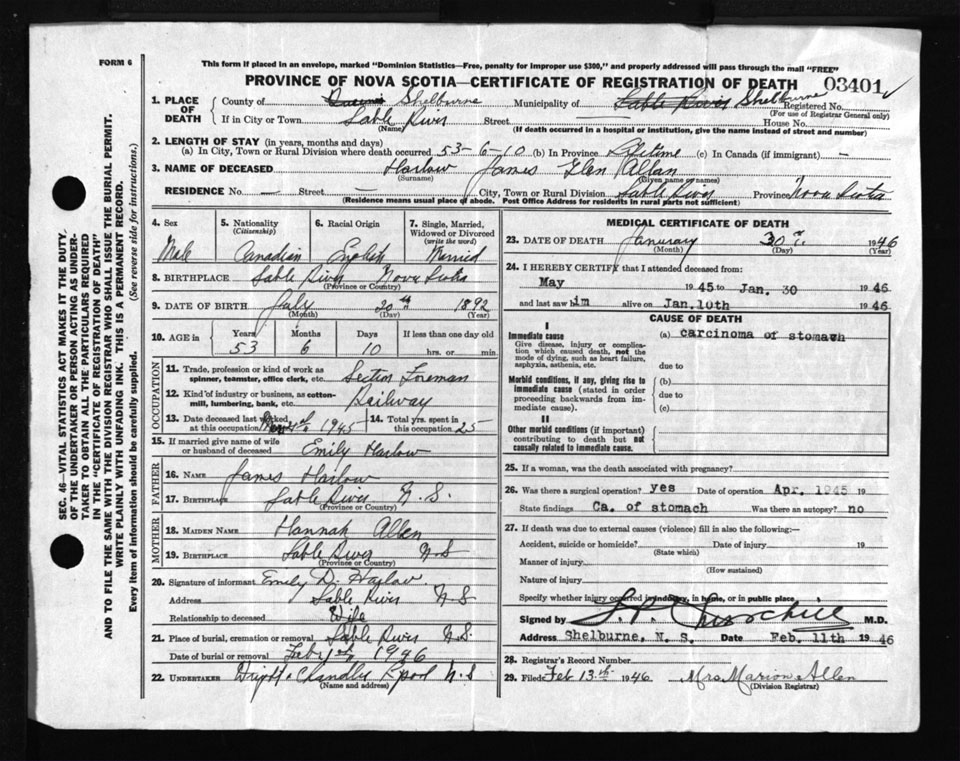 FORM 6
This form if placed in an envelope, marked "Dominion Statistics—Free, penalty for improper use $300," and properly addressed will pass through the mail "FREE"
PROVINCE OF NOVA SCOTIA—CERTIFICATE OF REGISTRATION OF DEATH 03401
1. PLACE OF DEATH County of Shelburne Municipality of Sable River Shelburne Registered No.
(For use of Registrar General only)
If in City or Town Sable River Street House No.
(Name) (If death occurred in a hospital or institution, give the name instead of street and number)
2. LENGTH OF STAY (in years, months and days)
(a) In City, Town or Rural Division where death occurred 53-6-10 (b) In Province Lifetime (c) In Canada (if immigrant) —
3. NAME OF DECEASED Harlow James Glen Allan
(Surname) (Given name or names)
RESIDENCE No. — Street — City, Town or Rural Division Sable River Province Nova Scotia
(Residence means usual place of abode. Post Office Address for residents in rural parts not sufficient)
SEC. 46—VITAL STATISTICS ACT MAKES IT THE DUTY.
OF THE UNDERTAKER OR PERSON ACTING AS UNDER-
TAKER TO OBTAIN ALL THE PARTICULARS REQUIRED
IN THE "CERTIFICATE OF REGISTRATION OF DEATH"
AND TO FILE THE SAME WITH THE DIVISION REGISTRAR WHO SHALL ISSUE THE BURIAL PERMIT.
WRITE PLAINLY WITH UNFADING INK. THIS IS A PERMANENT RECORD.
Every item of information should be carefully supplied. (See reverse side for instructions.)
4. Sex 5. Nationality (Citizenship) 6. Racial Origin 7. Single, Married, Widowed or Divorced (write the word)
Male Canadian English Married
8. BIRTHPLACE Sable River Nova Scotia
(Province or Country)
9. DATE OF BIRTH July 20th 1892
(Month) (Day) (Year)
10. AGE in Years Months Days If less than one day old
53 6 10 hrs. or min.
OCCUPATION
11. Trade, profession or kind of work as spinner, teamster, office clerk, etc. Section Foreman
12. Kind of industry or business, as cotton-mill, lumbering, bank, etc. Railway
13. Date deceased last worked at this occupation 1945 14. Total yrs. spent in this occupation 25
15. If married give name of wife or husband of deceased Emily Harlow
FATHER
16. NAME James Harlow
17. BIRTHPLACE Sable River N.S.
(Province or Country)
MOTHER
18. MAIDEN NAME Hannah Allen
19. BIRTHPLACE Sable River N.S
(Province or Country)
20. Signature of informant Emily D. Harlow
Address Sable River N.S
Relationship to deceased Wife
21. Place of burial, cremation or removal Sable River N.S.
Date of burial or removal 1946
22. UNDERTAKER Chandler N.S
(Name and address)
MEDICAL CERTIFICATE OF DEATH
23. DATE OF DEATH 30th 1946
(Month) (Day) (Year)
24. I HEREBY CERTIFY that I attended deceased from
May 1945 to Jan. 30 1946
and last saw him alive on Jan.10th 1946
CAUSE OF DEATH
I
Immediate cause (a) carcinoma of stomach
Give disease, injury or complication which caused death, not the mode of dying, such as heart failure, asphyxia, asthenia, etc.
due to
Morbid conditions, if any, giving rise to immediate cause (stated in order proceeding backwards from immediate cause). (b)
due to
(c)
II
Other morbid conditions (if important) contributing to death but not causally related to immediate cause.
25. If a woman, was the death associated with pregnancy?
26. Was there a surgical operation? yes Date of operation Apr. 1945 19
State findings Ca. of stomach Was there an autopsy? no
27. If death was due to external causes (violence) fill in also the following:—
Accident, suicide or homicide? Date of injury 19
(State which)
Manner of injury
(How sustained)
Nature of injury
Specify whether injury occurred in industry, in home, or in public place
Signed by M.D.
Address Shelburne, N. S. Date Feb. 11th 1946
28. Registrar's Record Number
29. Filed Feb 13th 1946 Mrs Marion Allen
(Division Registrar)